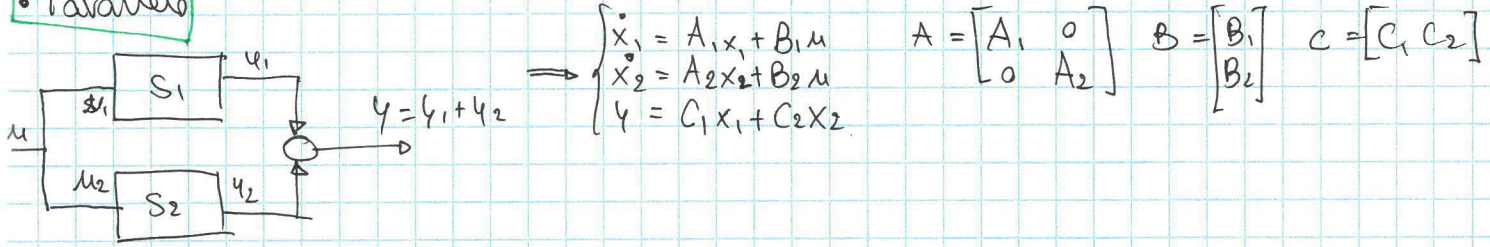 • Parallelo
S1
y1
u1
u
y = y1 + y2
u2
S2
y2
⟹ { ẋ1 = A1x1 + B1u
ẋ2 = A2x2 + B2u
y = C1x1 + C2x2
A = [A1 0
0 A2]
B = [B1
B2]
C = [C1 C2]